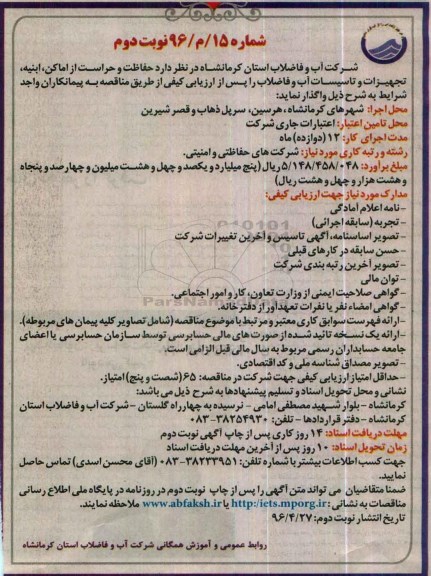 شماره ۱۵/م/۹۶ نوبت دوم
شرکت آب و فاضلاب استان کرمانشاه در نظر دارد حفاظت و حراست از اماکن، ابنیه،
تجهیزات و تاسیسات آب و فاضلاب را پس از ارزیابی کیفی از طریق مناقصه به پیمانکاران واجد
شرایط به شرح ذیل واگذار نماید:
محل اجرا: شهرهای کرمانشاه، هرسین، سرپل ذهاب و قصر شیرین
محل تامین اعتبار: اعتبارات جاری شرکت
مدت اجرای کار: ۱۲ (دوازده) ماه
رشته و رتبه کاری مورد نیاز: شرکت های حفاظتی و امنیتی.
مبلغ برآورد: ۵/۱۴۸/۴۵۸/۰۴۸ ریال (پنج میلیارد و یکصد و چهل و هشت میلیون و چهارصد و پنجاه
و هشت هزار و چهل و هشت ریال)
مدارک مورد نیاز جهت ارزیابی کیفی:
-نامه اعلام آمادگی
- تجربه (سابقه اجرائی)
-تصویر اساسنامه، آگهی تاسیس و آخرین تغییرات شرکت
-حسن سابقه در کارهای قبلی
-تصویر آخرین رتبه بندی شرکت
- توان مالی
-گواهی صلاحیت ایمنی از وزارت تعاون، کار و امور اجتماعی.
-گواهی امضاء نفر یا نفرات تعهدآور از دفترخانه.
-ارائه فهرست سوابق کاری معتبر و مرتبط با موضوع مناقصه (شامل تصاویر کلیه پیمان های مربوطه).
-ارائه یک نسخه تائید شده از صورت های مالی حسابرسی توسط سازمان حسابرسی یا اعضای
جامعه حسابداران رسمی مربوط به سال مالی قبل الزامی است.
-تصویر مصدق شناسه ملی و کد اقتصادی.
-حداقل امتیاز ارزیابی کیفی جهت شرکت در مناقصه: ۶۵ (شصت و پنج) امتیاز.
نشانی و محل تحویل اسناد و تسلیم پیشنهادها به شرح ذیل می باشد:
کرمانشاه - بلوار شهید مصطفی امامی - نرسیده به چهارراه گلستان - شرکت آب و فاضلاب استان
کرمانشاه - دفتر قراردادها - تلفن: ۳۸۲۵۴۹۳۰-۰۸۳
مهلت دریافت اسناد: ۱۴ روز کاری پس از چاپ آگهی نوبت دوم
زمان تحویل اسناد: ۱۰ روز پس از آخرین مهلت دریافت اسناد
جهت کسب اطلاعات بیشتر با شماره تلفن: ۳۸۲۳۳۹۵۱-۰۸۳ (آقای محسن اسدی) تماس حاصل
نمایید.
ضمنا متقاضیان می تواند متن آگهی را پس از چاپ نوبت دوم در روزنامه در پایگاه ملی اطلاع رسانی
مناقصات به نشانی: http://iets.mporg.ir یا www.abfaksh.ir ملاحظه نمایند.
تاریخ انتشار نوبت دوم: ۹۶/۴/۲۷
روابط عمومی و آموزش همگانی شرکت آب و فاضلاب استان کرمانشاه